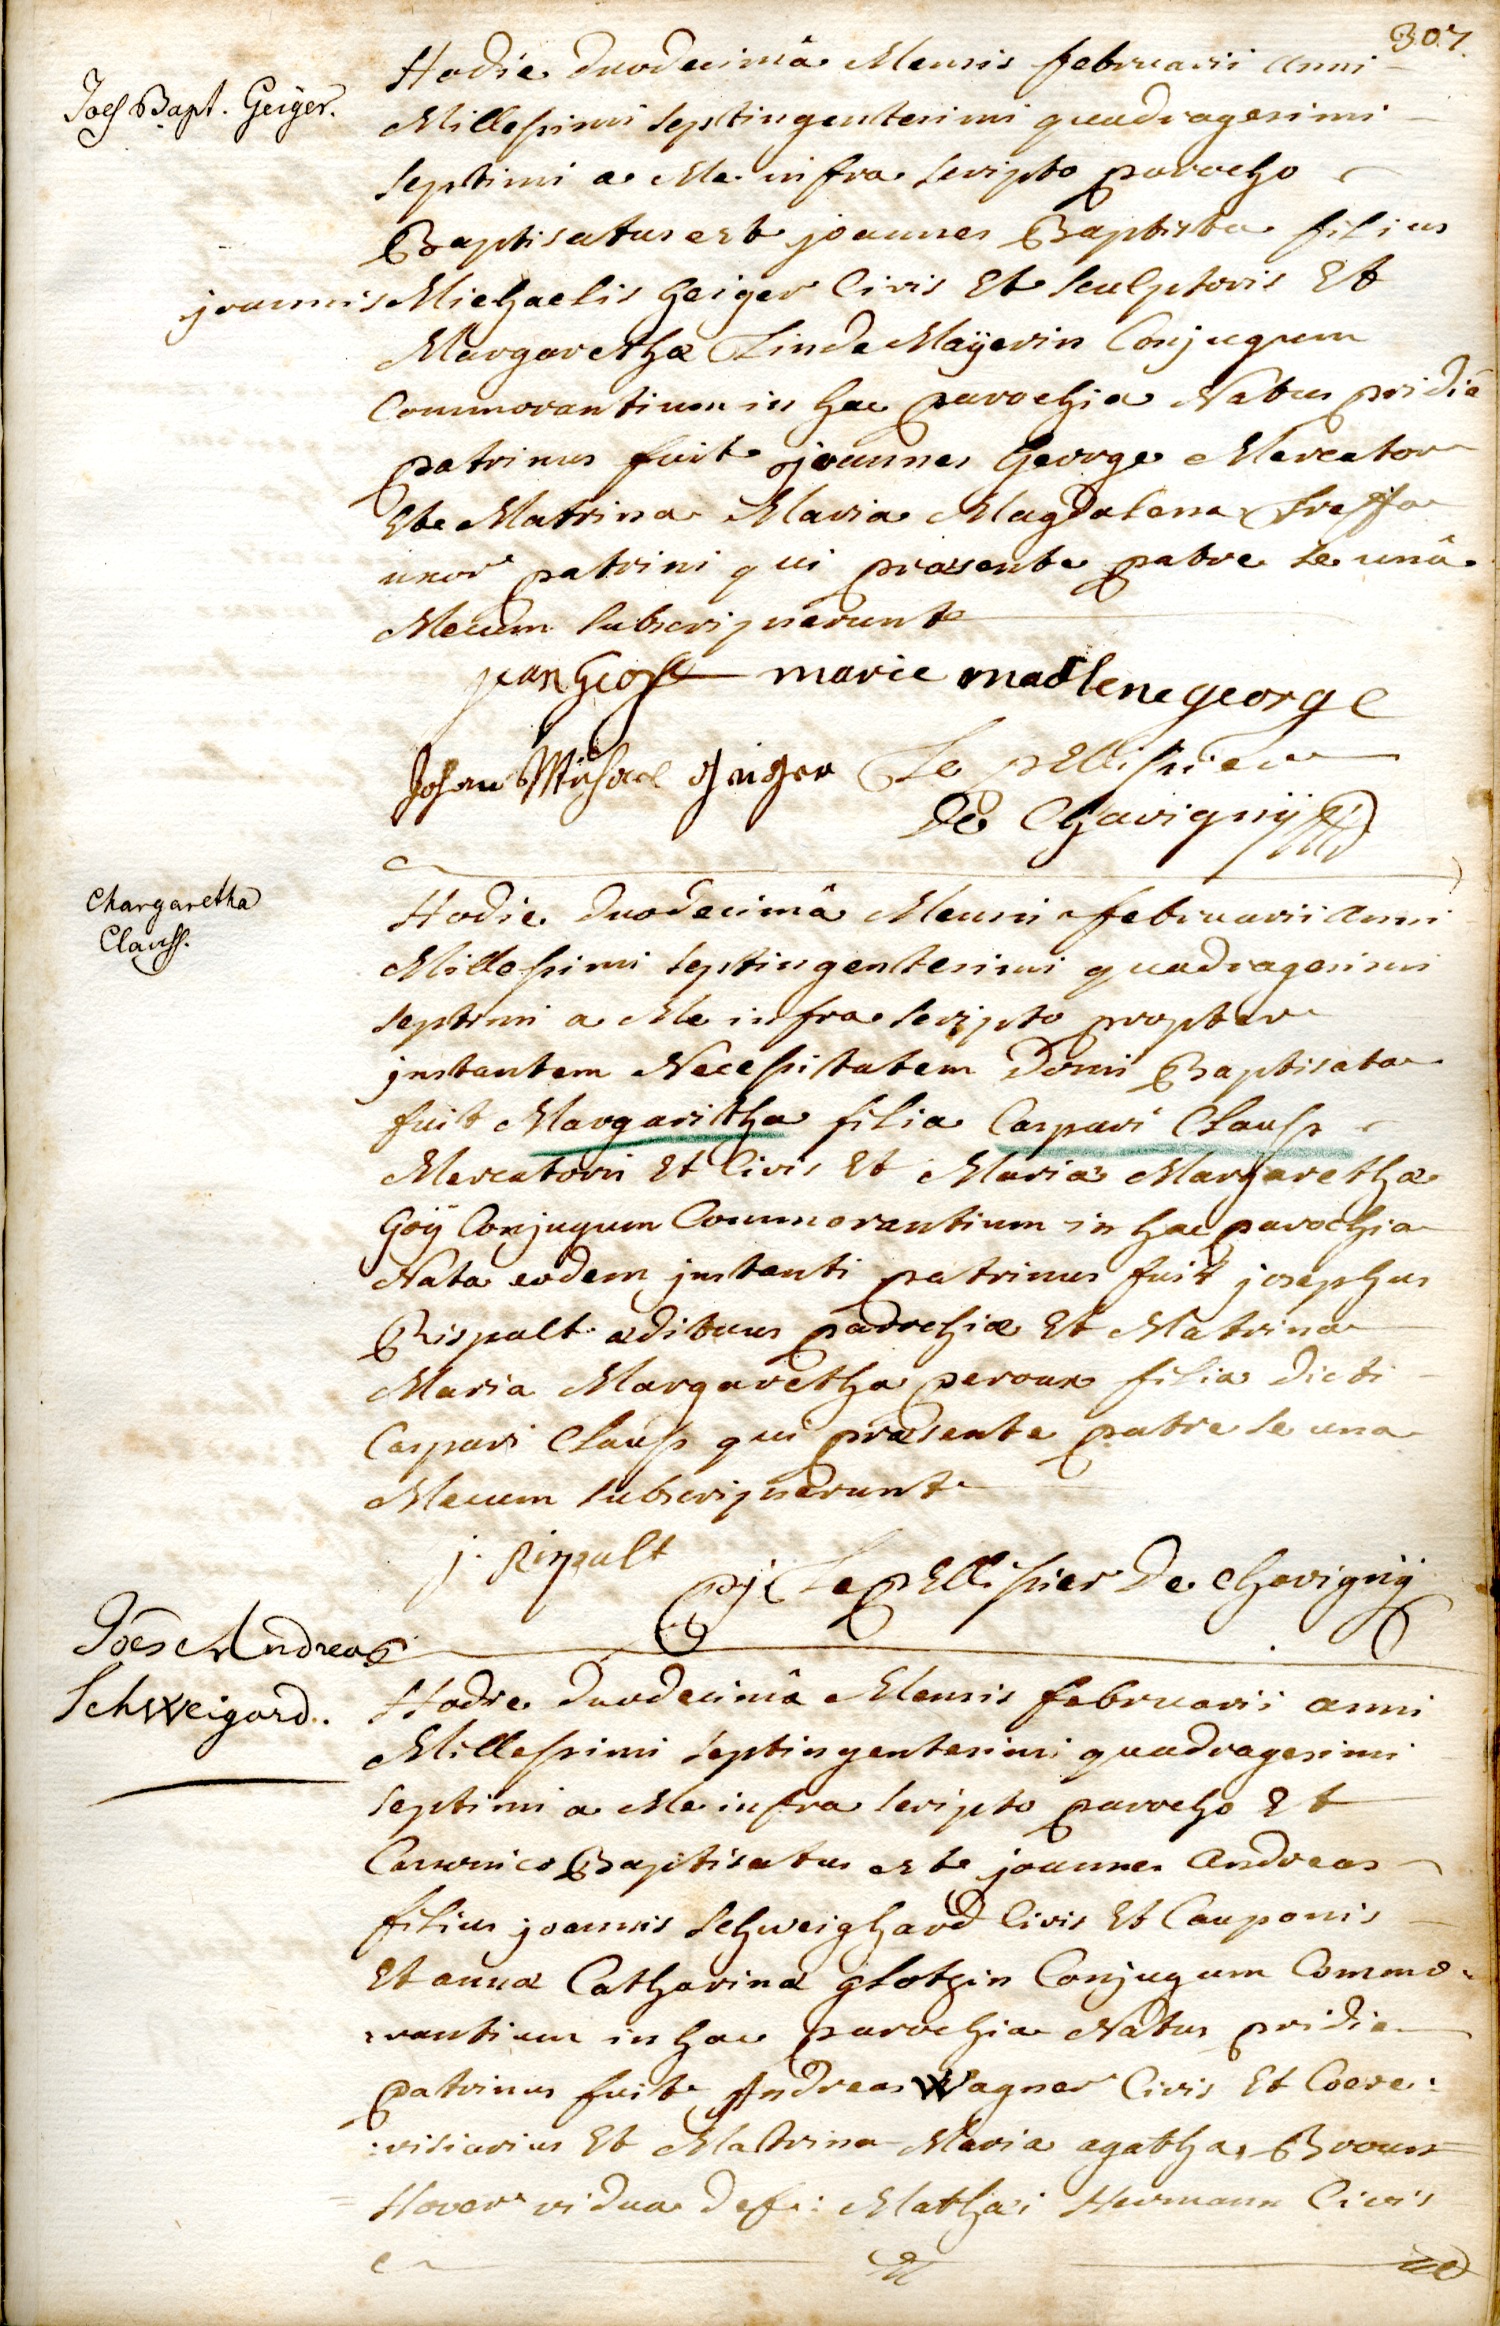 307.
Joes Bapt. Geiger.
Hodie duodecimâ Mensis februarii anni
Millessimi septingentesimi quadragesimi
septimi a Me infra scripto parocho
Baptisatus est joannes Baptista filius
joannis Michaelis Geiger Civis Et sculptoris Et
Margarethæ Linde Maÿerin Conjugum
Commorantium in hac parochia Natus pridiè
patrinus fuit joannes George Mercator
Et Matrina Maria Magdalena
uxor patrini qui præsente patre se unâ
Mecum subscripserunt
jean George marie madlene george
Johan Michael Geiger Le pellissier
De Chavignÿ
Margaretha
Clauss.
Hodie duodecimâ Mensis februarii anni
Millessimi septingentesimi quadragesimi
septimi a Me infra scripto propter
jnstantem Necessitatem Domi Baptisata
fuit Margaritha filia Caspari Clauss
Mercatoris Et Civis Et Mariæ Margarethæ
Goÿ Conjugum Commorantium in hac parochia
Nata eodem jnstanti patrinus fuit josephus
Rispalt ædituus parochiæ Et Matrina
Maria Margaretha peroux filia dicti
Caspari Clauss qui præsente patre se una
Mecum subscripserunt
j. Rispalt
pj Le pellissier De Chavignÿ
Joes Andreas
Schweigard.
Hodie duodecimâ Mensis februarii anni
Millessimi septingentesimi quadragesimi
septimi a Me infra scripto parocho Et
Canonico Baptisatus est joannes Andreas
filius joannis Schweighard Civis Et Cauponis
Et annæ Catharinæ glotzin Conjugum Commo-
rantium in hac parochia Natus pridie
patrinus fuit Andreas Wagner Civis Et Coere:
:visiarius Et Matrina Maria agatha Broun=
=Hover vidua def: Mathæi Hermann Civis